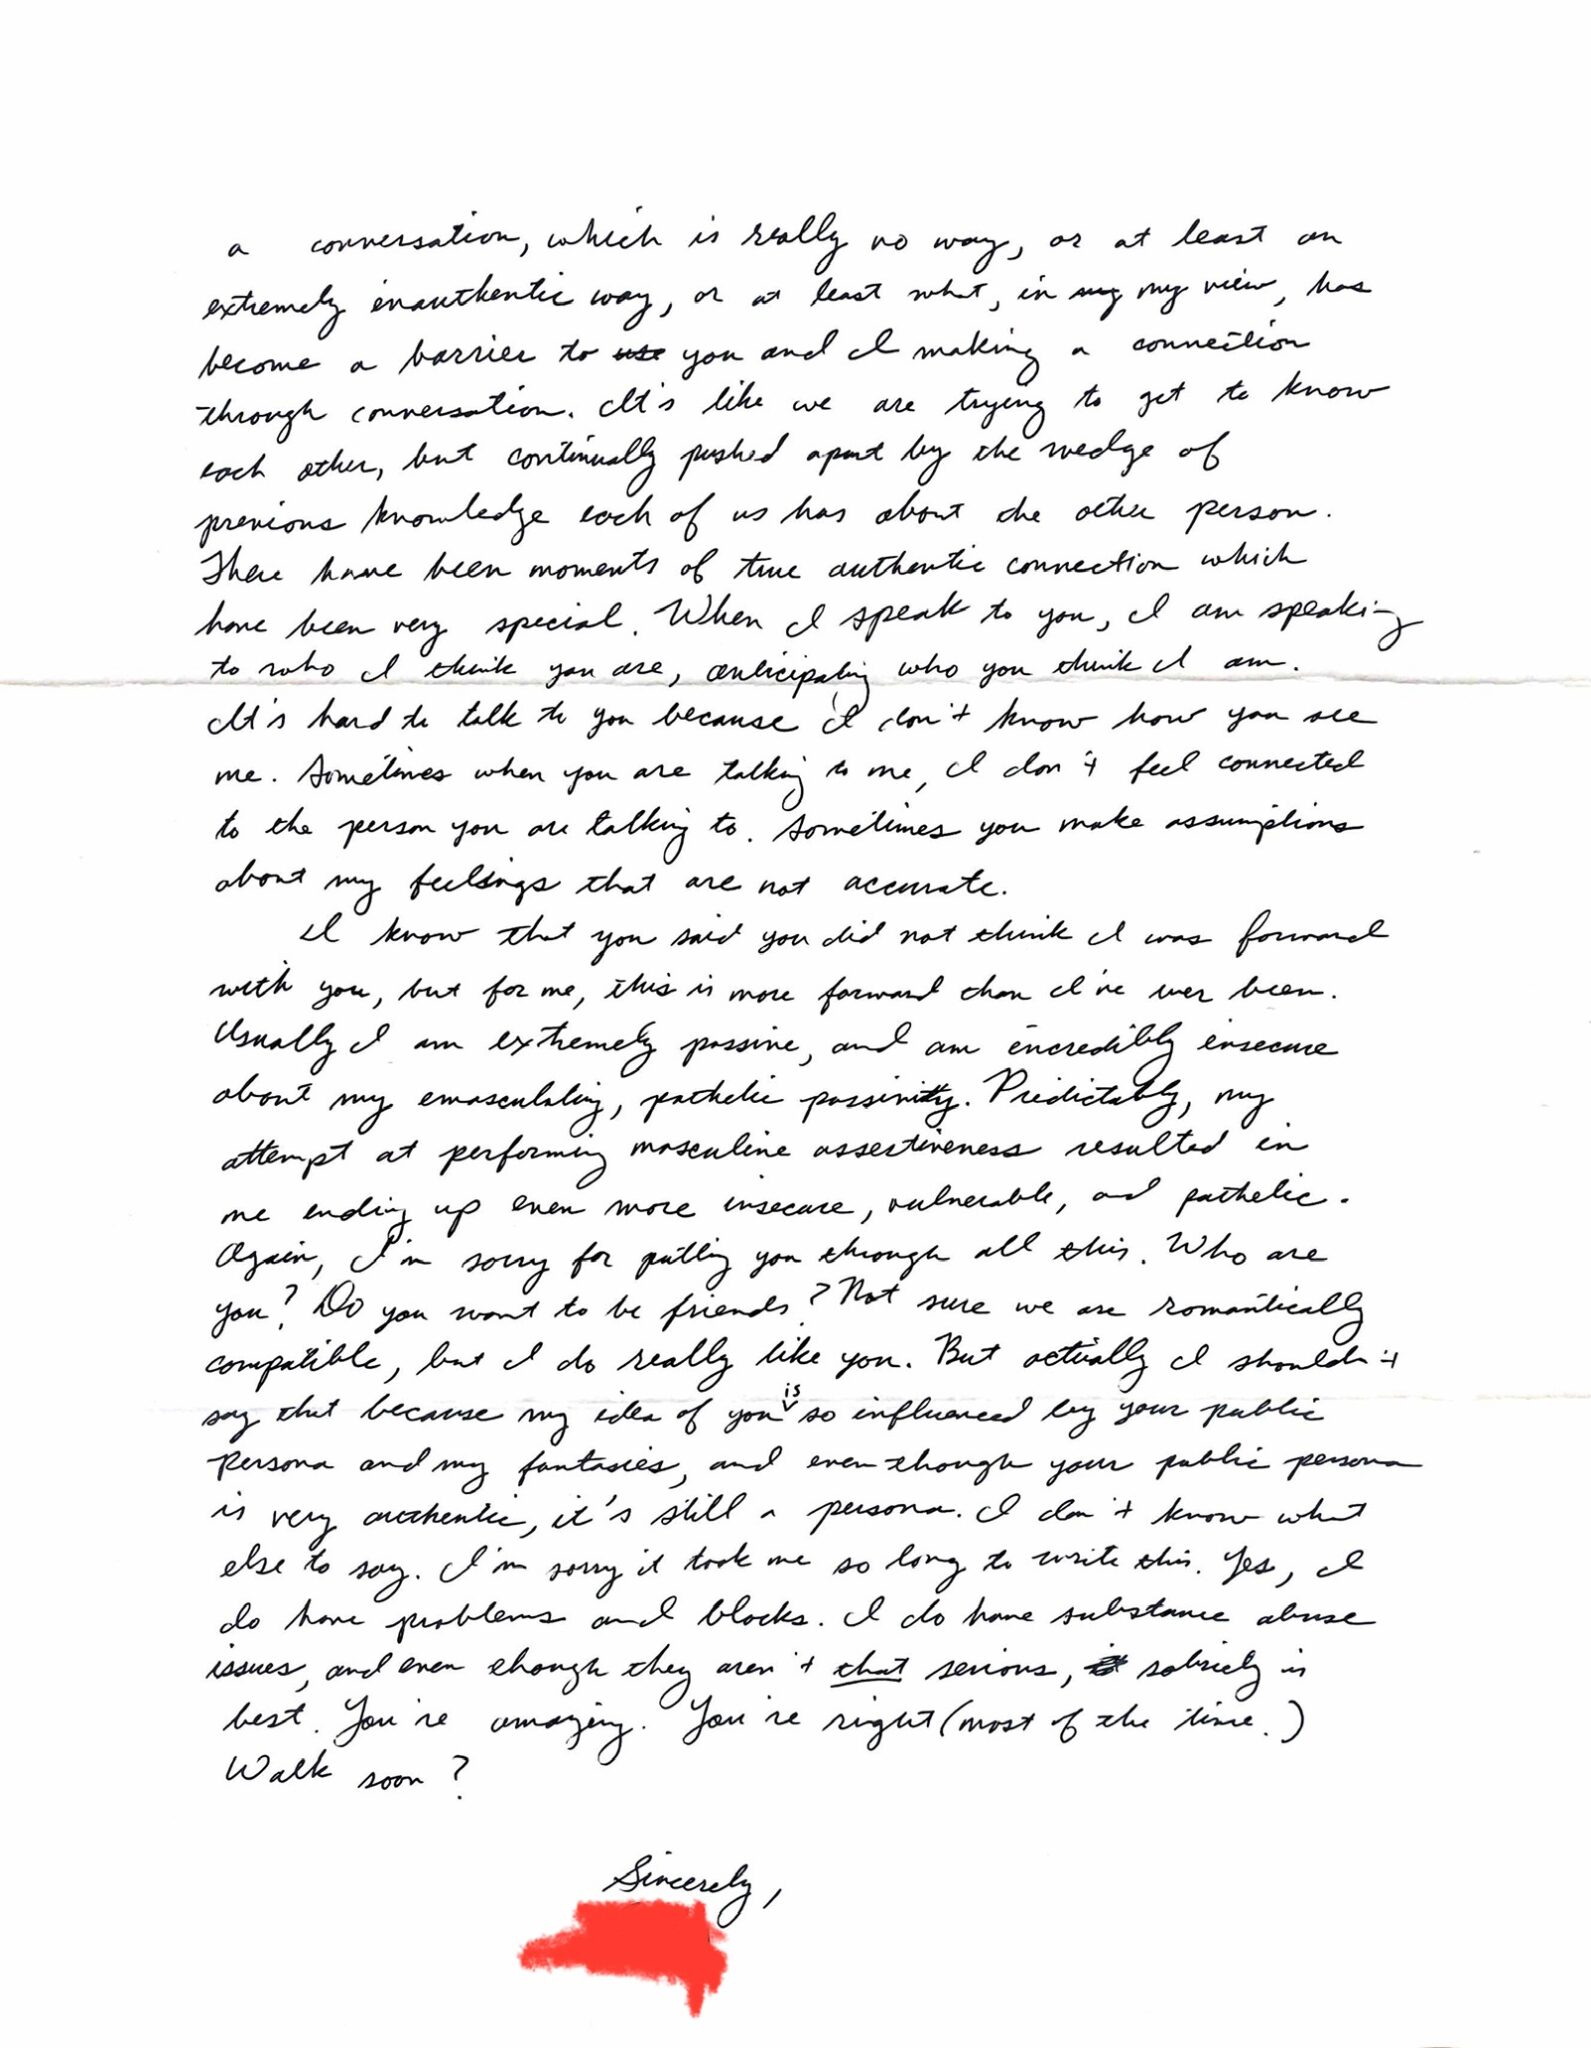 a conversation, which is really no way, or at least an
extremely inauthentic way, or at least what, in my my view, has
become a barrier to use you and I making a connection
through conversation. It's like we are trying to get to know
each other, but continually pushed apart by the wedge of
previous knowledge each of us has about the other person.
There have been moments of true authentic connection which
have been very special. When I speak to you, I am speaking
to who I think you are, anticipating who you think I am.
It's hard to talk to you because I don't know how you see
me. Sometimes when you are talking to me, I don't feel connected
to the person you are talking to. Sometimes you make assumptions
about my feelings that are not accurate.
I know that you said you did not think I was forward
with you, but for me, this is more forward than I've ever been.
Usually I am extremely passive, and am incredibly insecure
about my emasculating, pathetic passivity. Predictably, my
attempt at performing masculine assertiveness resulted in
me ending up even more insecure, vulnerable, and pathetic.
Again, I'm sorry for putting you through all this. Who are
you? Do you want to be friends? Not sure we are romantically
compatible, but I do really like you. But actually I shouldn't
say that because my idea of you is so influenced by your public
persona and my fantasies, and even though your public persona
is very authentic, it's still a persona. I don't know what
else to say. I'm sorry it took me so long to write this. Yes, I
do have problems and blocks. I do have substance abuse
issues, and even though they aren't that serious, sobriety is
best. You're amazing. You're right (most of the time.)
Walk soon?
Sincerely,